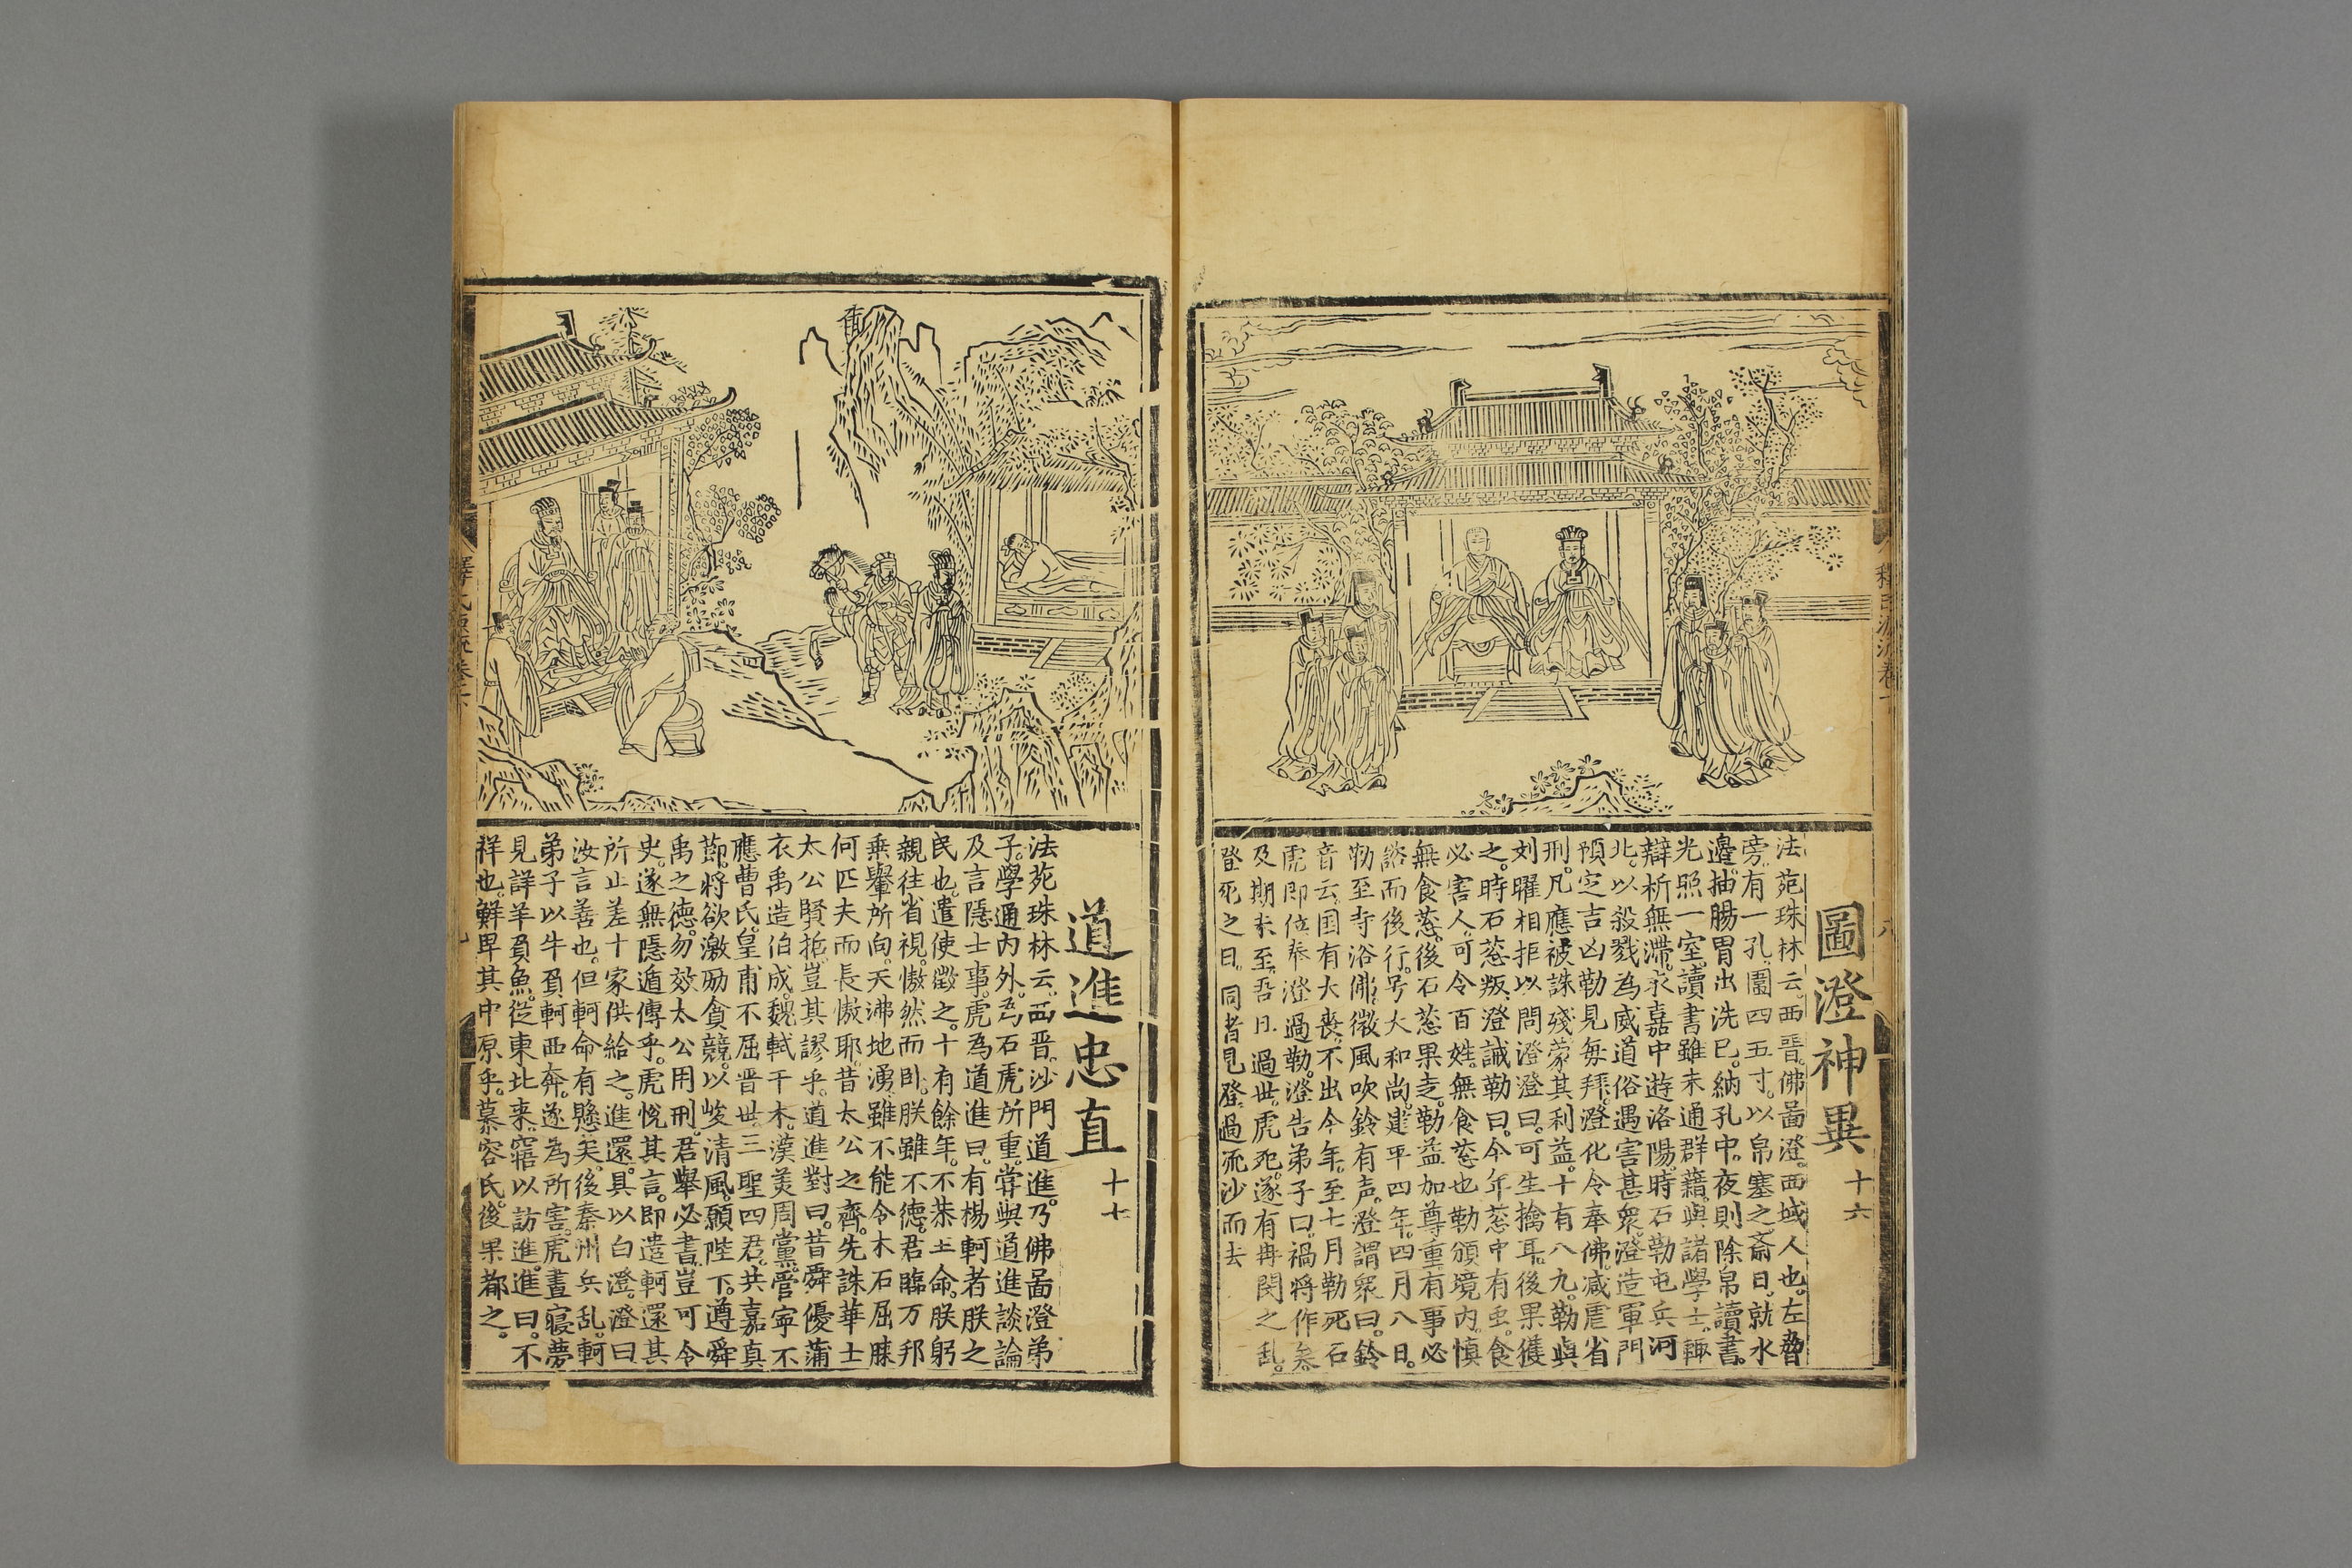 圖澄神異 十六
法苑珠林云。西晋。佛啚澄。西域人也。左脅
旁。有一孔。圍四五寸。以帛塞之。斋日。就水
邊。抽腸胃出洗已。納孔中。夜則除帛讀書。
光照一室。讀書雖未通群籍。與諸學士。輙
辯析無滯。永嘉中遊洛陽。時石勒屯兵河
北。以殺戮為威。道俗遇害甚衆。澄造軍門
預定吉凶。勒見每拜。澄化令奉佛。减虐省
刑。凡應被誅殘。蒙其利益。十有八九。勒與
刘曜相拒。以問澄。澄曰。可生擒耳。後果獲
之。時石葱叛。澄誡勒曰。今年葱中有虫。食
必害人。可令百姓。無食葱也。勒頒境内。慎
無食葱。後石葱果走。勒益加尊重。有事必
諮而後行。号大和尚。建平四年。四月八日。
勒至寺浴佛。微風吹鈴有声。澄謂衆曰。鈴
音云。国有大丧。不出今年。至七月勒死。石
虎即位。奉澄過勒。澄告弟子曰。禍將作矣。
及期未至。吾且過世。虎死。遂有冉閔之乱。
登死之日。同者見登過流沙而去
道進忠直 十七
法苑珠林云。西晋。沙門道進。乃佛啚澄弟
子。學通内外。為石虎所重。嘗與道進談論
及言隱士事。虎為道進曰。有楊軻者。朕之
民也。遣使徵之。十有餘年。不恭王命。朕躬
親往省視。慠然而卧。朕雖不德。君臨万邦
乗轝所向。天沸地湧。雖不能令木石屈膝
何匹夫而長慠耶。昔太公之齊。先誅華士
太公賢哲。豈其謬乎。道進對曰。昔舜優蒲
衣。禹造伯成。魏軾干木。漢美周黨。管寧不
應曹氏。皇甫不屈晋世。三聖四君。共嘉真
節。將欲激勵貪競。以峻清風。願陛下。遵舜
禹之德。勿效太公用刑。君舉必書。豈可令
史。遂無隱遁傳乎。虎悦其言。即遣軻還其
所止。差十家供給之。進還。具以白澄。澄曰
汝言善也。但軻命有懸矣。後秦州兵乱。軻
弟子以牛負軻西奔。遂為所害。虎晝寢夢
見詳羊負魚。從東北来。寤以訪進。進曰。不
祥也。鮮卑其中原乎。慕容氏。後果都之。